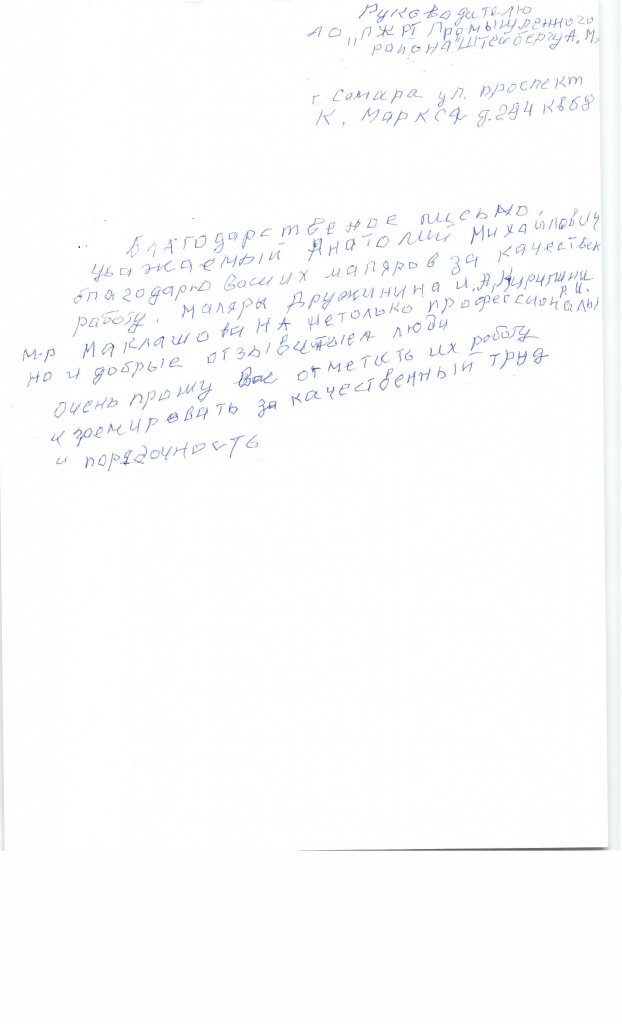 Руководителю
АО "ПЖРТ Промышленного
района" Штейбергу А.М.
г. Самара ул. проспект
К. Маркса д.294 кв68
Благодарственое письмо.
уважаемый Анатолий Михайлович
благодарю Ваших маляров за качествен
работу. Маляры Дружинина И.А,
Р.И.
М-р Маклашова Н А нетолько професионалы
но и добрые отзывчивые люди
Очень прошу Вас отметить их работу
и премировать за качественный труд
и порядочность